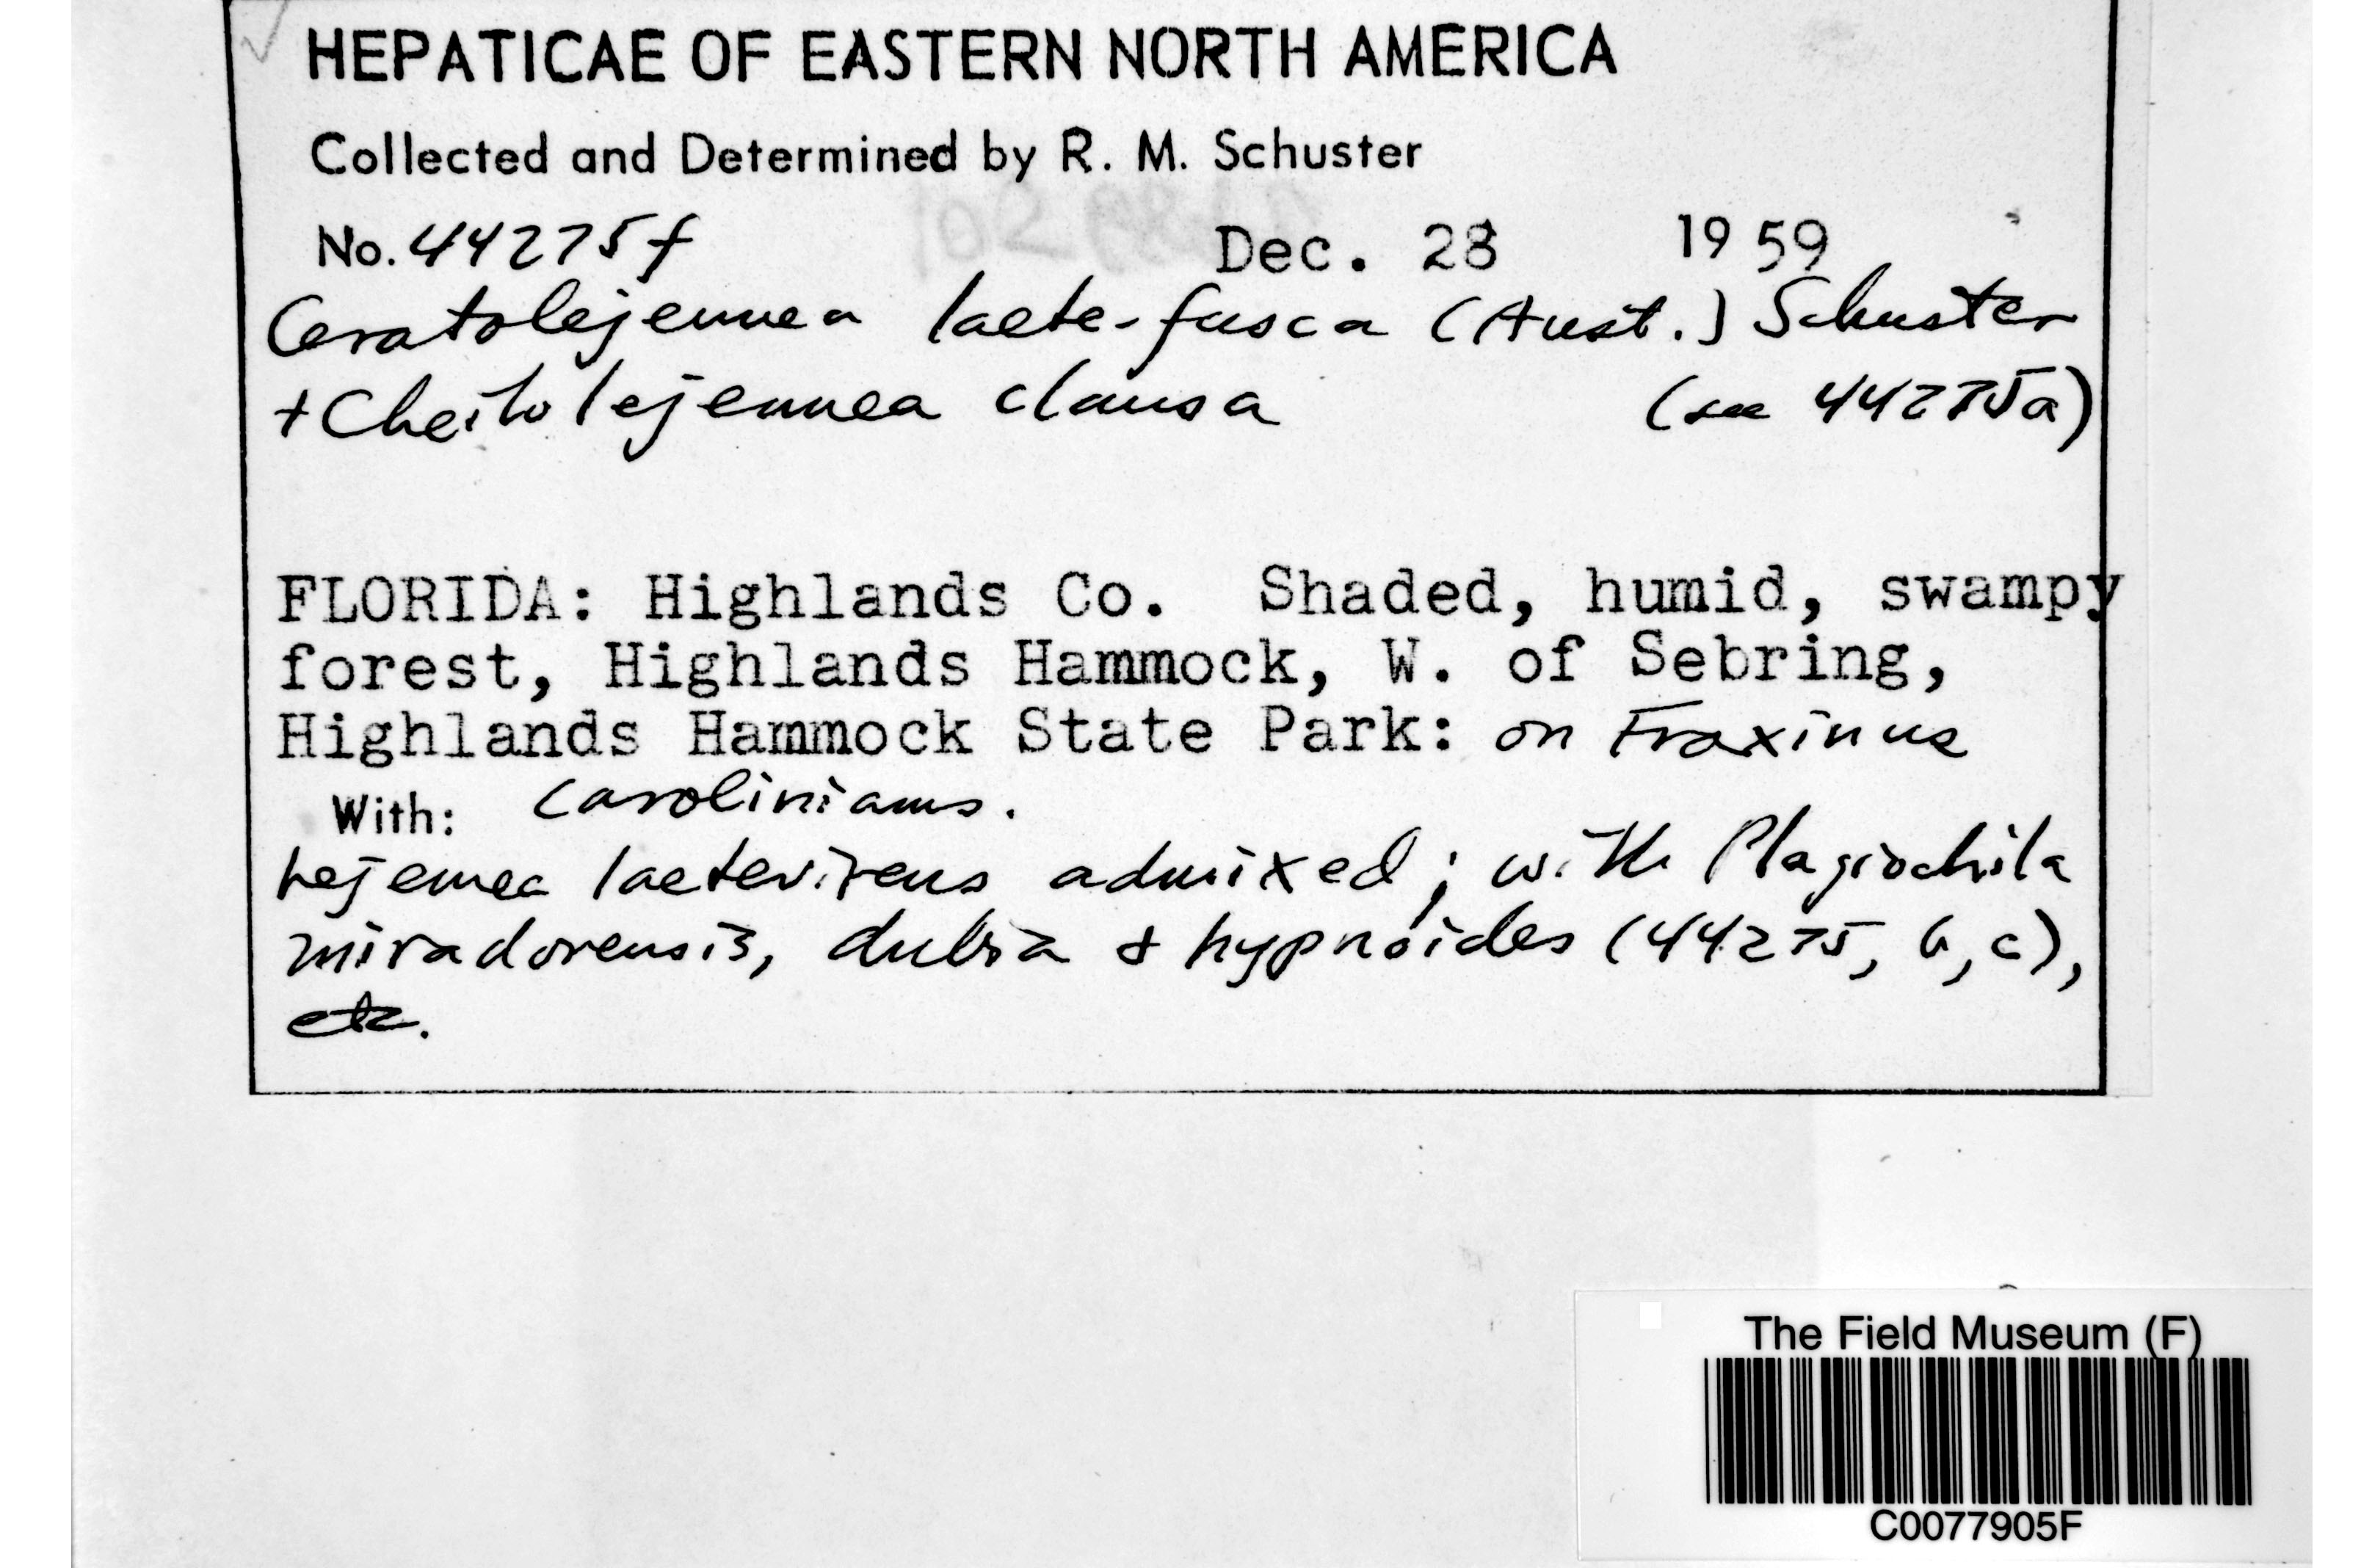 HEPATICAE OF EASTERN NORTH AMERICA
Collected and Determined by R. M. Schuster
No. 44275f Dec. 28 1959
Ceratolejeunea laete-fusca (Aust.) Schuster
+ Cheilolejeunea clausa (see 44275a)
FLORIDA: Highlands Co. Shaded, humid, swampy
forest, Highlands Hammock, W. of Sebring,
Highlands Hammock State Park: on Fraxinus
With: caroliniana.
Lejeunea laetevirens admixed; with Plagiochila
miradorensis, dubia & hypnoides (44275, b, c),
etc.
The Field Museum (F)
C0077905F